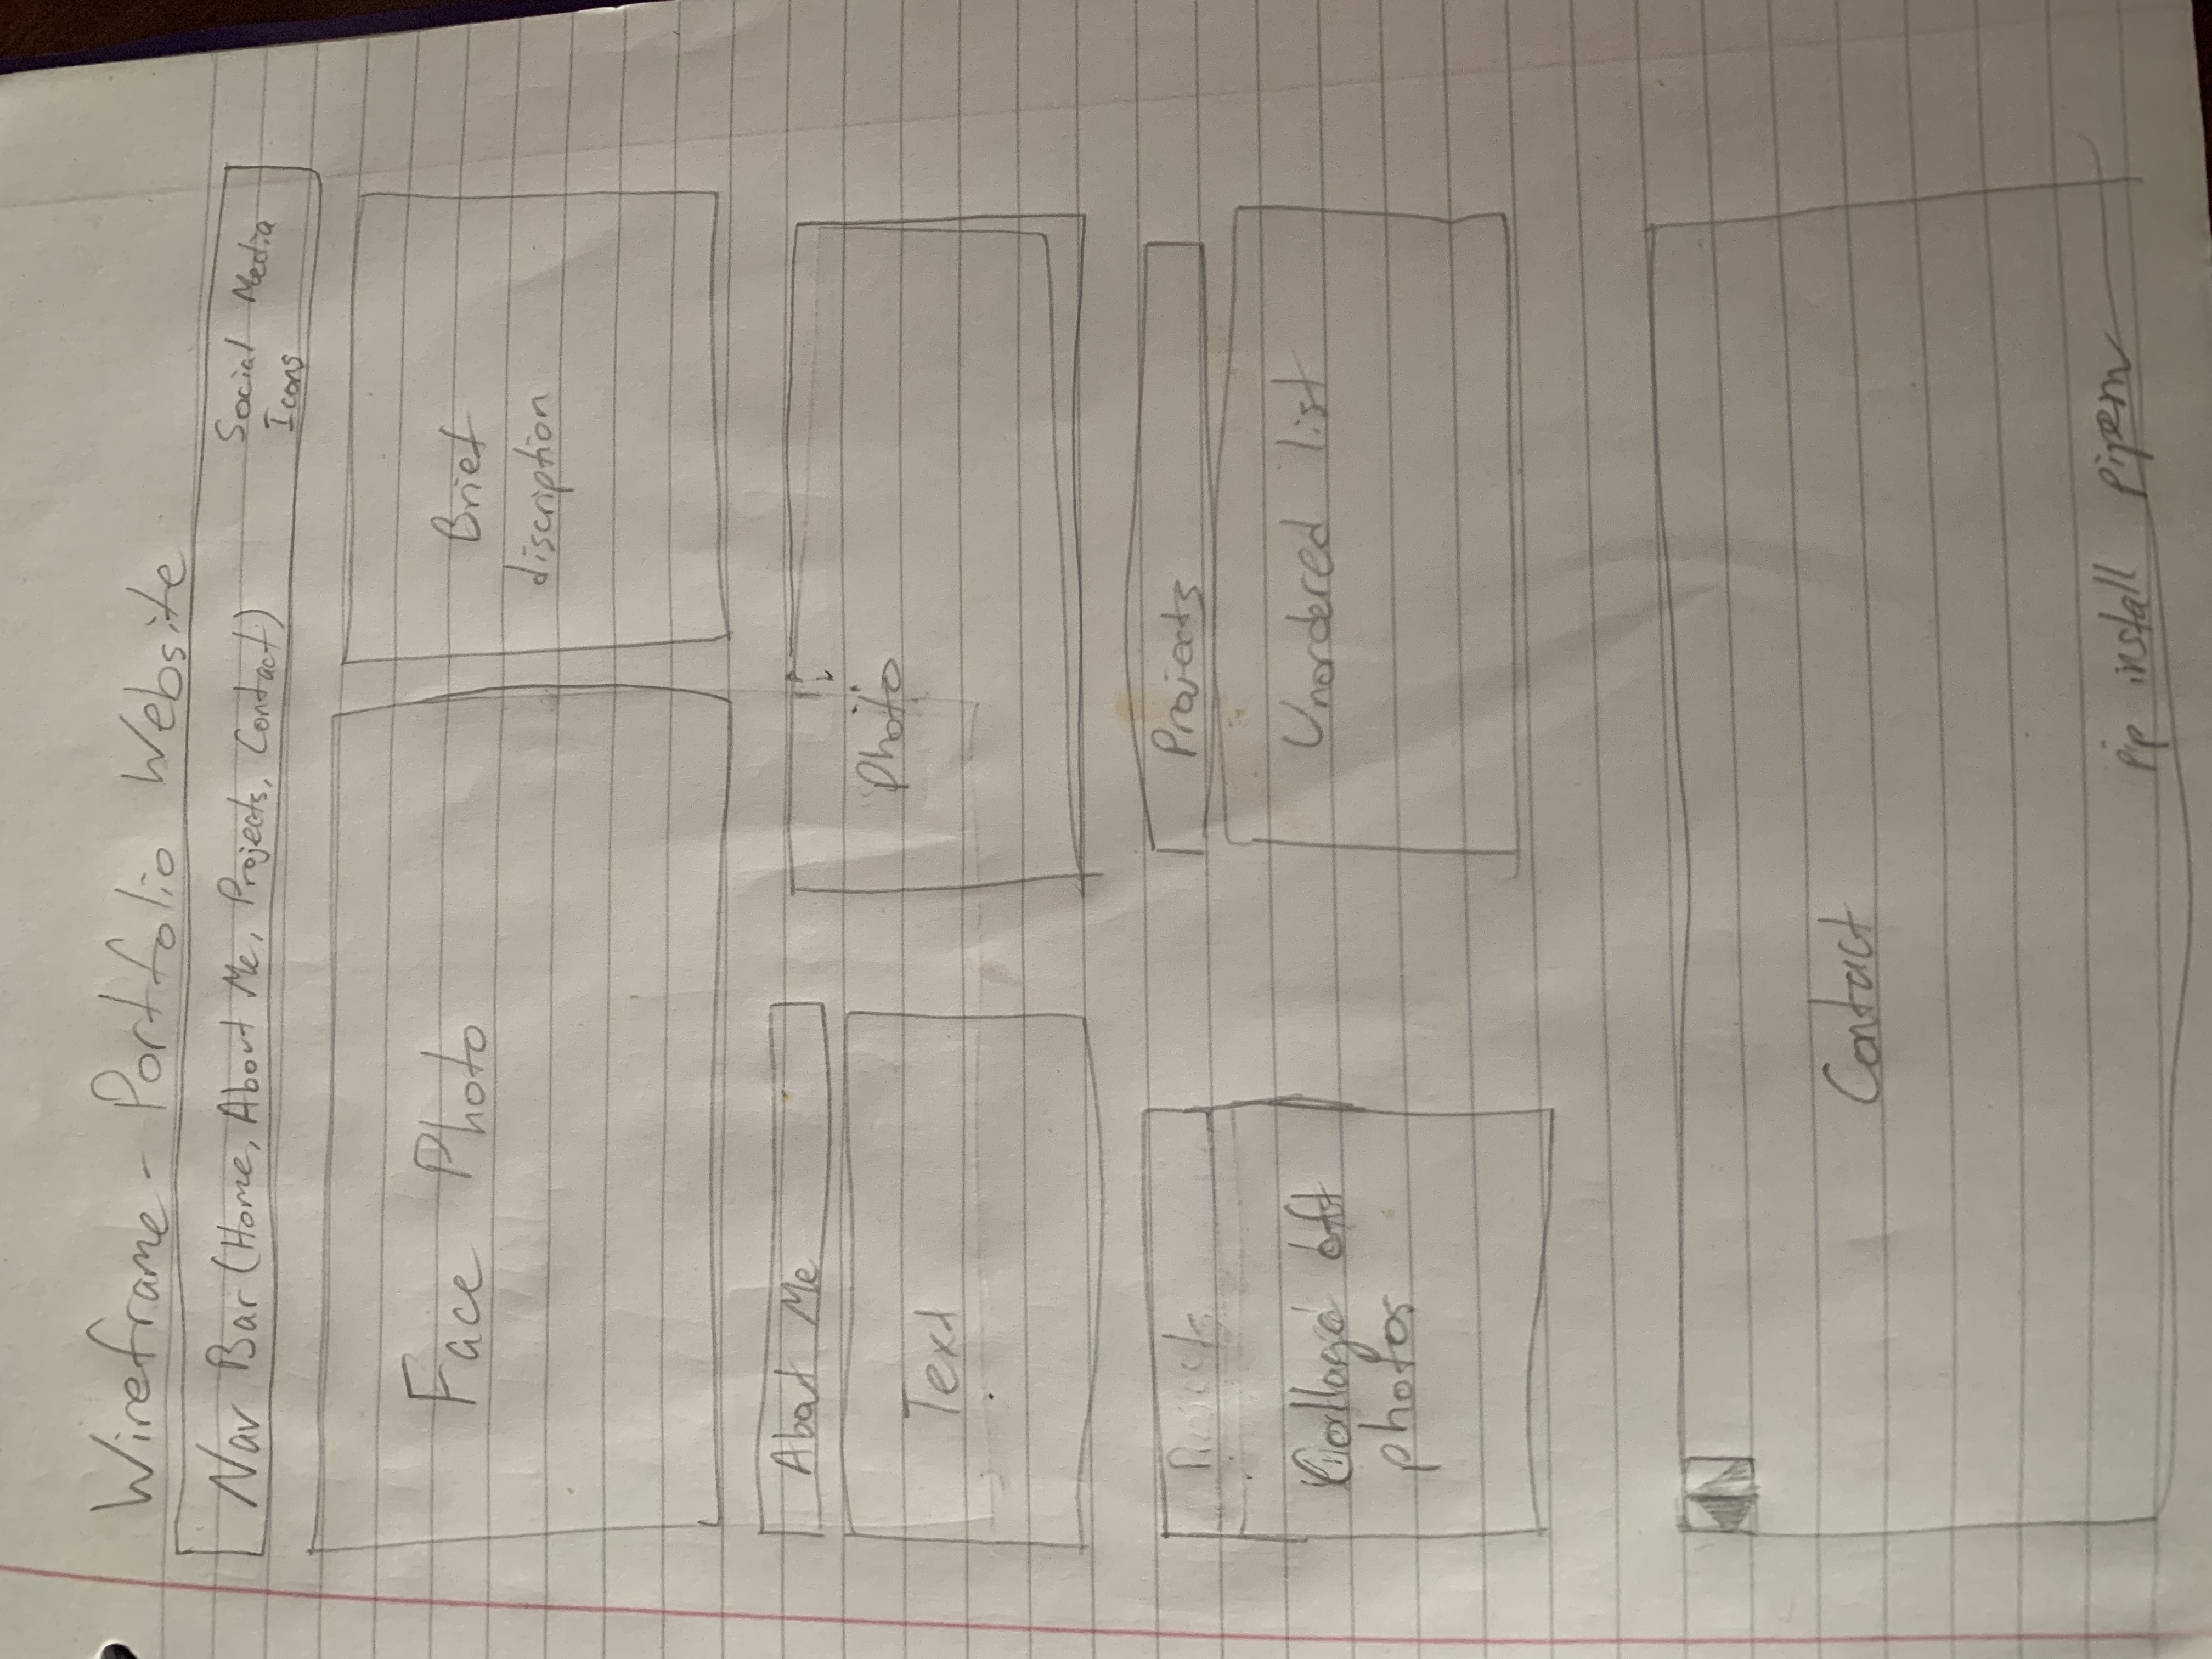 Wireframe - Portfolio Website
Nav Bar (Home, About Me, Projects, Contact)
Social Media
Icons
Face Photo
Brief
discription
About Me
Text
Photo
Projects
Collage of
photos
Projects
Unordered list
Contact
pip install